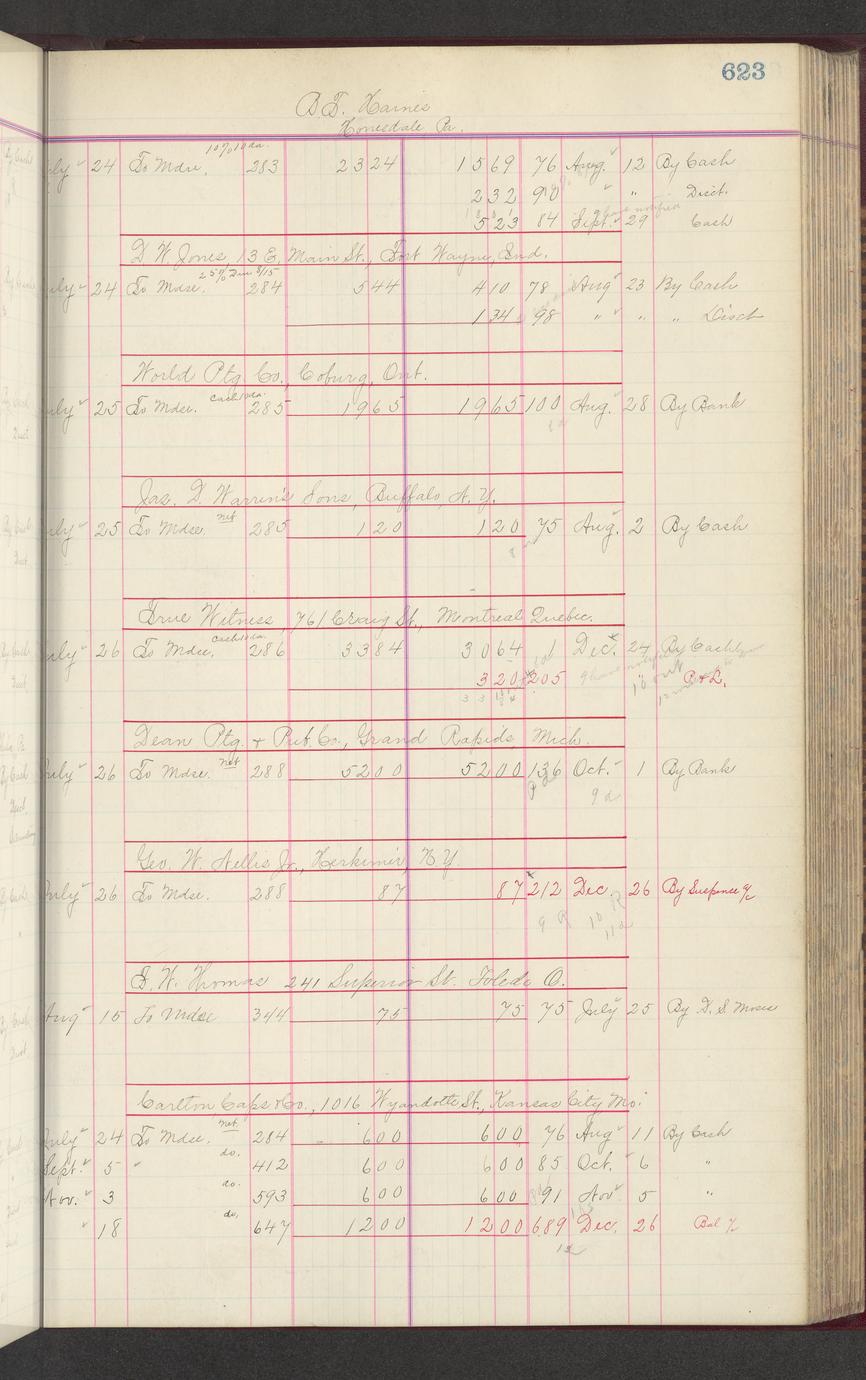 623
B.F. Haines
Honesdale Pa.
10% 10 da.
24 To Mdse. 283 2324 1569 76 Aug. 12 By Cash
232 90 " " Disct.
523 84 Sept. 29 Cash
D. W. Jones, 13 E. Main St., Fort Wayne, Ind.
24 To Mdse. 284 544 410 78 Aug 23 By Cash
134 98 " " " Disct
World Ptg Co., Coburg, Ont.
cash 10 da.
July 25 To Mdse. 285 1965 1965 100 Aug. 28 By Bank
Jas. D. Warren's Sons, Buffalo, N.Y.
net
July 25 To Mdse. 285 120 120 75 Aug. 2 By Cash
True Witness, 761 Craig St., Montreal Quebec.
cash 10 da.
July 26 To Mdse. 286 3384 3064 1 Dec. 24 By Cash
320 205 " P & L.
Dean Ptg. & Pub. Co., Grand Rapids Mich.
July 26 To Mdse. net 288 5200 5200 136 Oct. 1 By Bank
Geo. W. Nellis Jr., Herkimer, N.Y.
July 26 To Mdse. 288 87 87 212 Dec. 26 By Suspense a/c
E. W. Thomas 241 Superior St. Toledo O.
Aug 15 To Mdse 344 75 75 75 July 25 By D. S. Moses
Carlton, Caps & Co., 1016 Wyandotte St., Kansas City Mo.
July 24 To Mdse. net. 284 600 600 76 Aug 11 By Cash
Sept. 5 " do. 412 600 600 85 Oct. 6 "
Nov. 3 do. 593 600 600 91 Nov 5 "
" 18 do. 647 1200 1200 689 Dec. 26 Bal